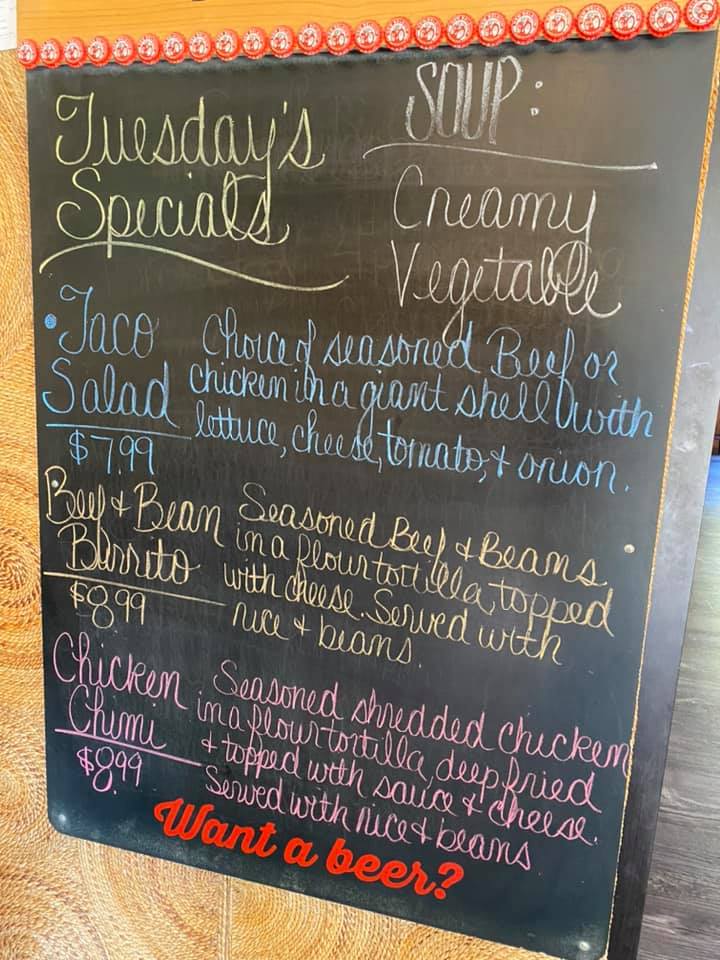 Tuesday's
Specials
SOUP:
Creamy
Vegetable
Taco
Salad
$7.99
Choice of seasoned Beef or
chicken in a giant shell with
lettuce, cheese, tomato, + onion.
Beef + Bean
Burrito
$8.99
Seasoned Beef + Beans
in a flour tortilla, topped
with cheese. Served with
rice + beans.
Chicken
Chimi
$8.99
Seasoned shredded chicken
in a flour tortilla, deep fried
+ topped with sauce + cheese.
Served with rice + beans
Want a beer?